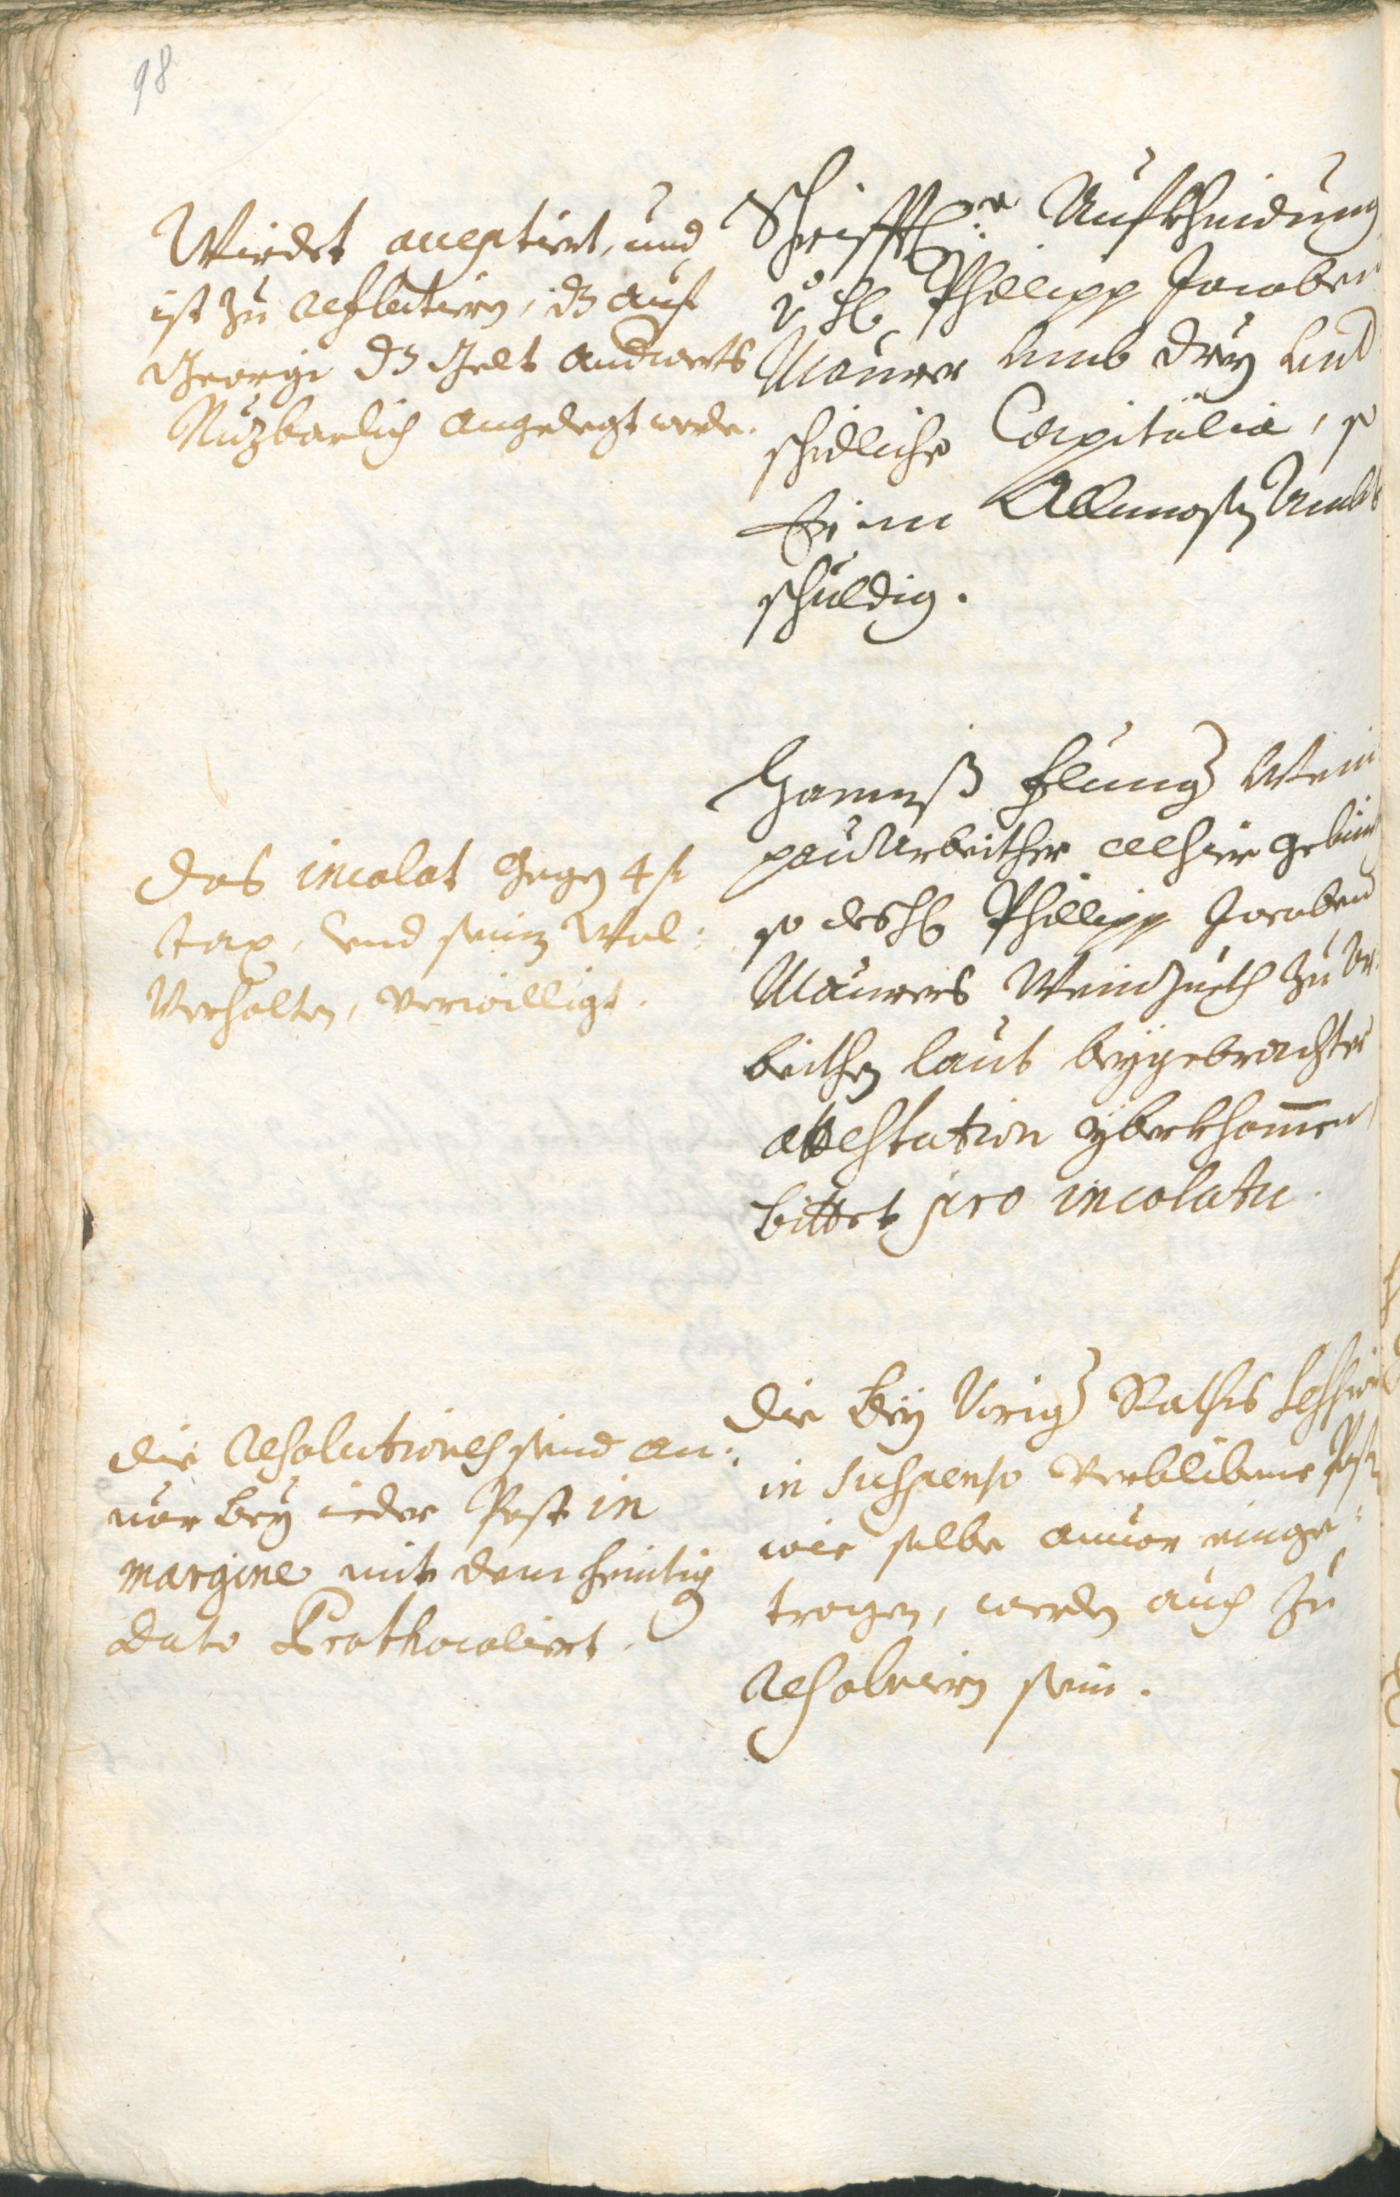 98
Wirdet acceptiert, und
ist zu reflectiern, dz auf
Georgi dz Gelt anderwerts
Nuzbarlich angelegt werde.
Schrifftl: Aufkhindung
H: Phillipp Jacoben
Maurer umb drey und
schidliche Capitalia, so
Er im Allmosen Ambt
schuldig.
das incolat gegen 4 f
tax, und seinem Wol:
Verhalten, verwilligt.
Hannß Wein
pau Arbeither alhier gebürt
so des H: Phillipp Jacoben
Maurers Weinhueth zu Ar
beithen laut beygebrachter
attestation yberkhommen,
bittet pro incolatu.
die resolutiones seind an:
uor bey ieder Post in
margine mit dem heuntig
dato Prothocoliert.
die bey Vorig Raths Session
in suspenso verblibene Post
wie selbe anuor einge:
tragen, werden auch zu
resoluiern sein.